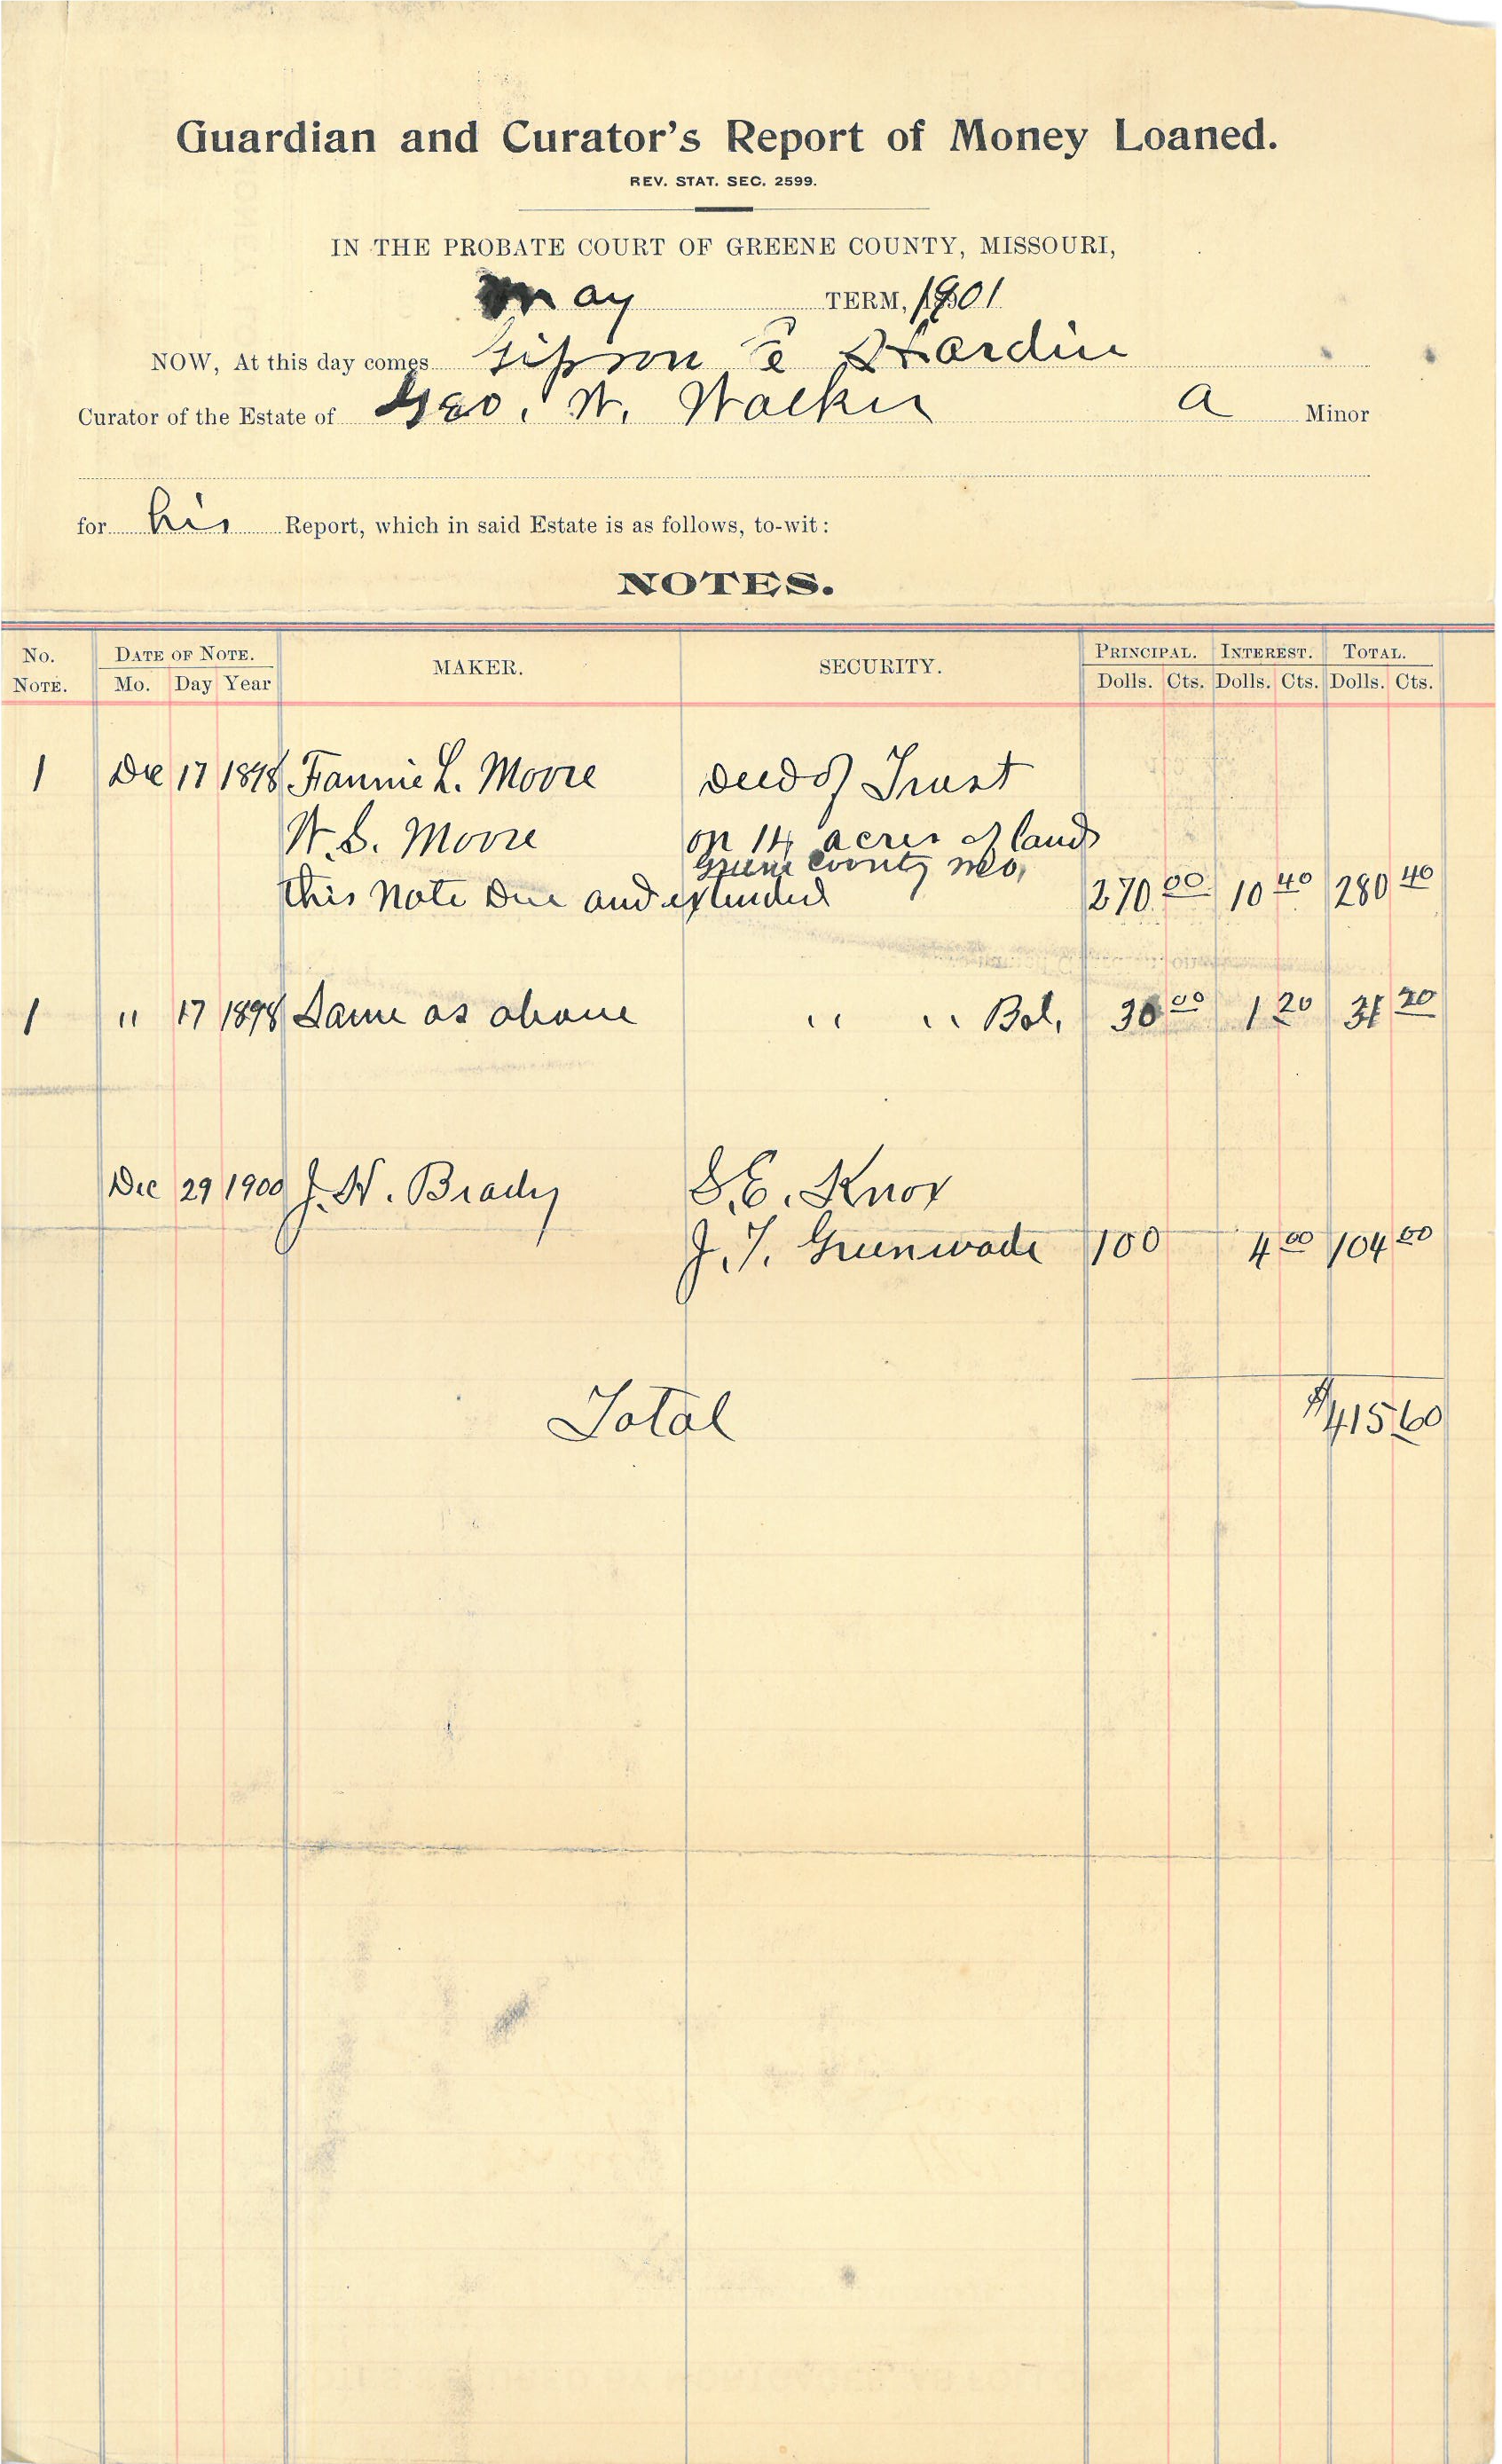 Guardian and Curator's Report of Money Loaned.
REV. STAT. SEC. 2599.
IN THE PROBATE COURT OF GREENE COUNTY, MISSOURI,
May TERM, 1901
NOW, At this day comes Gipson E Hardin
Curator of the Estate of Geo. W. Walker a Minor
for his Report, which in said Estate is as follows, to-wit:
NOTES.
No. NOTE. DATE OF NOTE. Mo. Day Year MAKER. SECURITY. PRINCIPAL. Dolls. Cts. INTEREST. Dolls. Cts. TOTAL. Dolls. Cts.
1 Dec 17 1898 Fannie L. Moore deed of Trust
W. S. Moore on 14 acres of land
Greene County Mo,
this Note Due and extended 270 00 10 40 280 40
1 " 17 1898 Same as above " " Bal. 30 00 1 20 31 20
Dec 29 1900 J. H. Brady S. E. Knox
J. T. Greenwade 100 4 00 104 00
Total $415 60